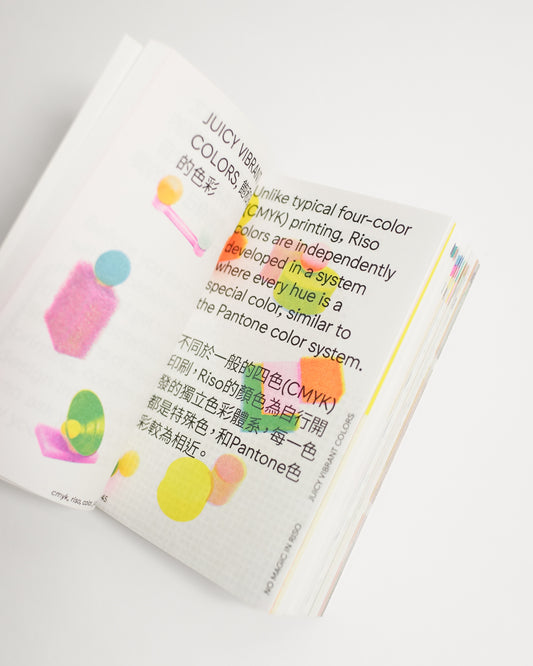 JUICY VIBRANT
COLORS,
的色彩
cmyk, riso,
45
Unlike typical four-color
(CMYK) printing, Riso
colors are independently
developed in a system
where every hue is a
special color, similar to
the Pantone color system.
不同於一般的四色(CMYK)
印刷，Riso的顏色為自行開
發的獨立色彩體系，每一色
都是特殊色，和Pantone色
彩較為相近。
NO MAGIC IN RISO
JUICY VIBRANT COLORS